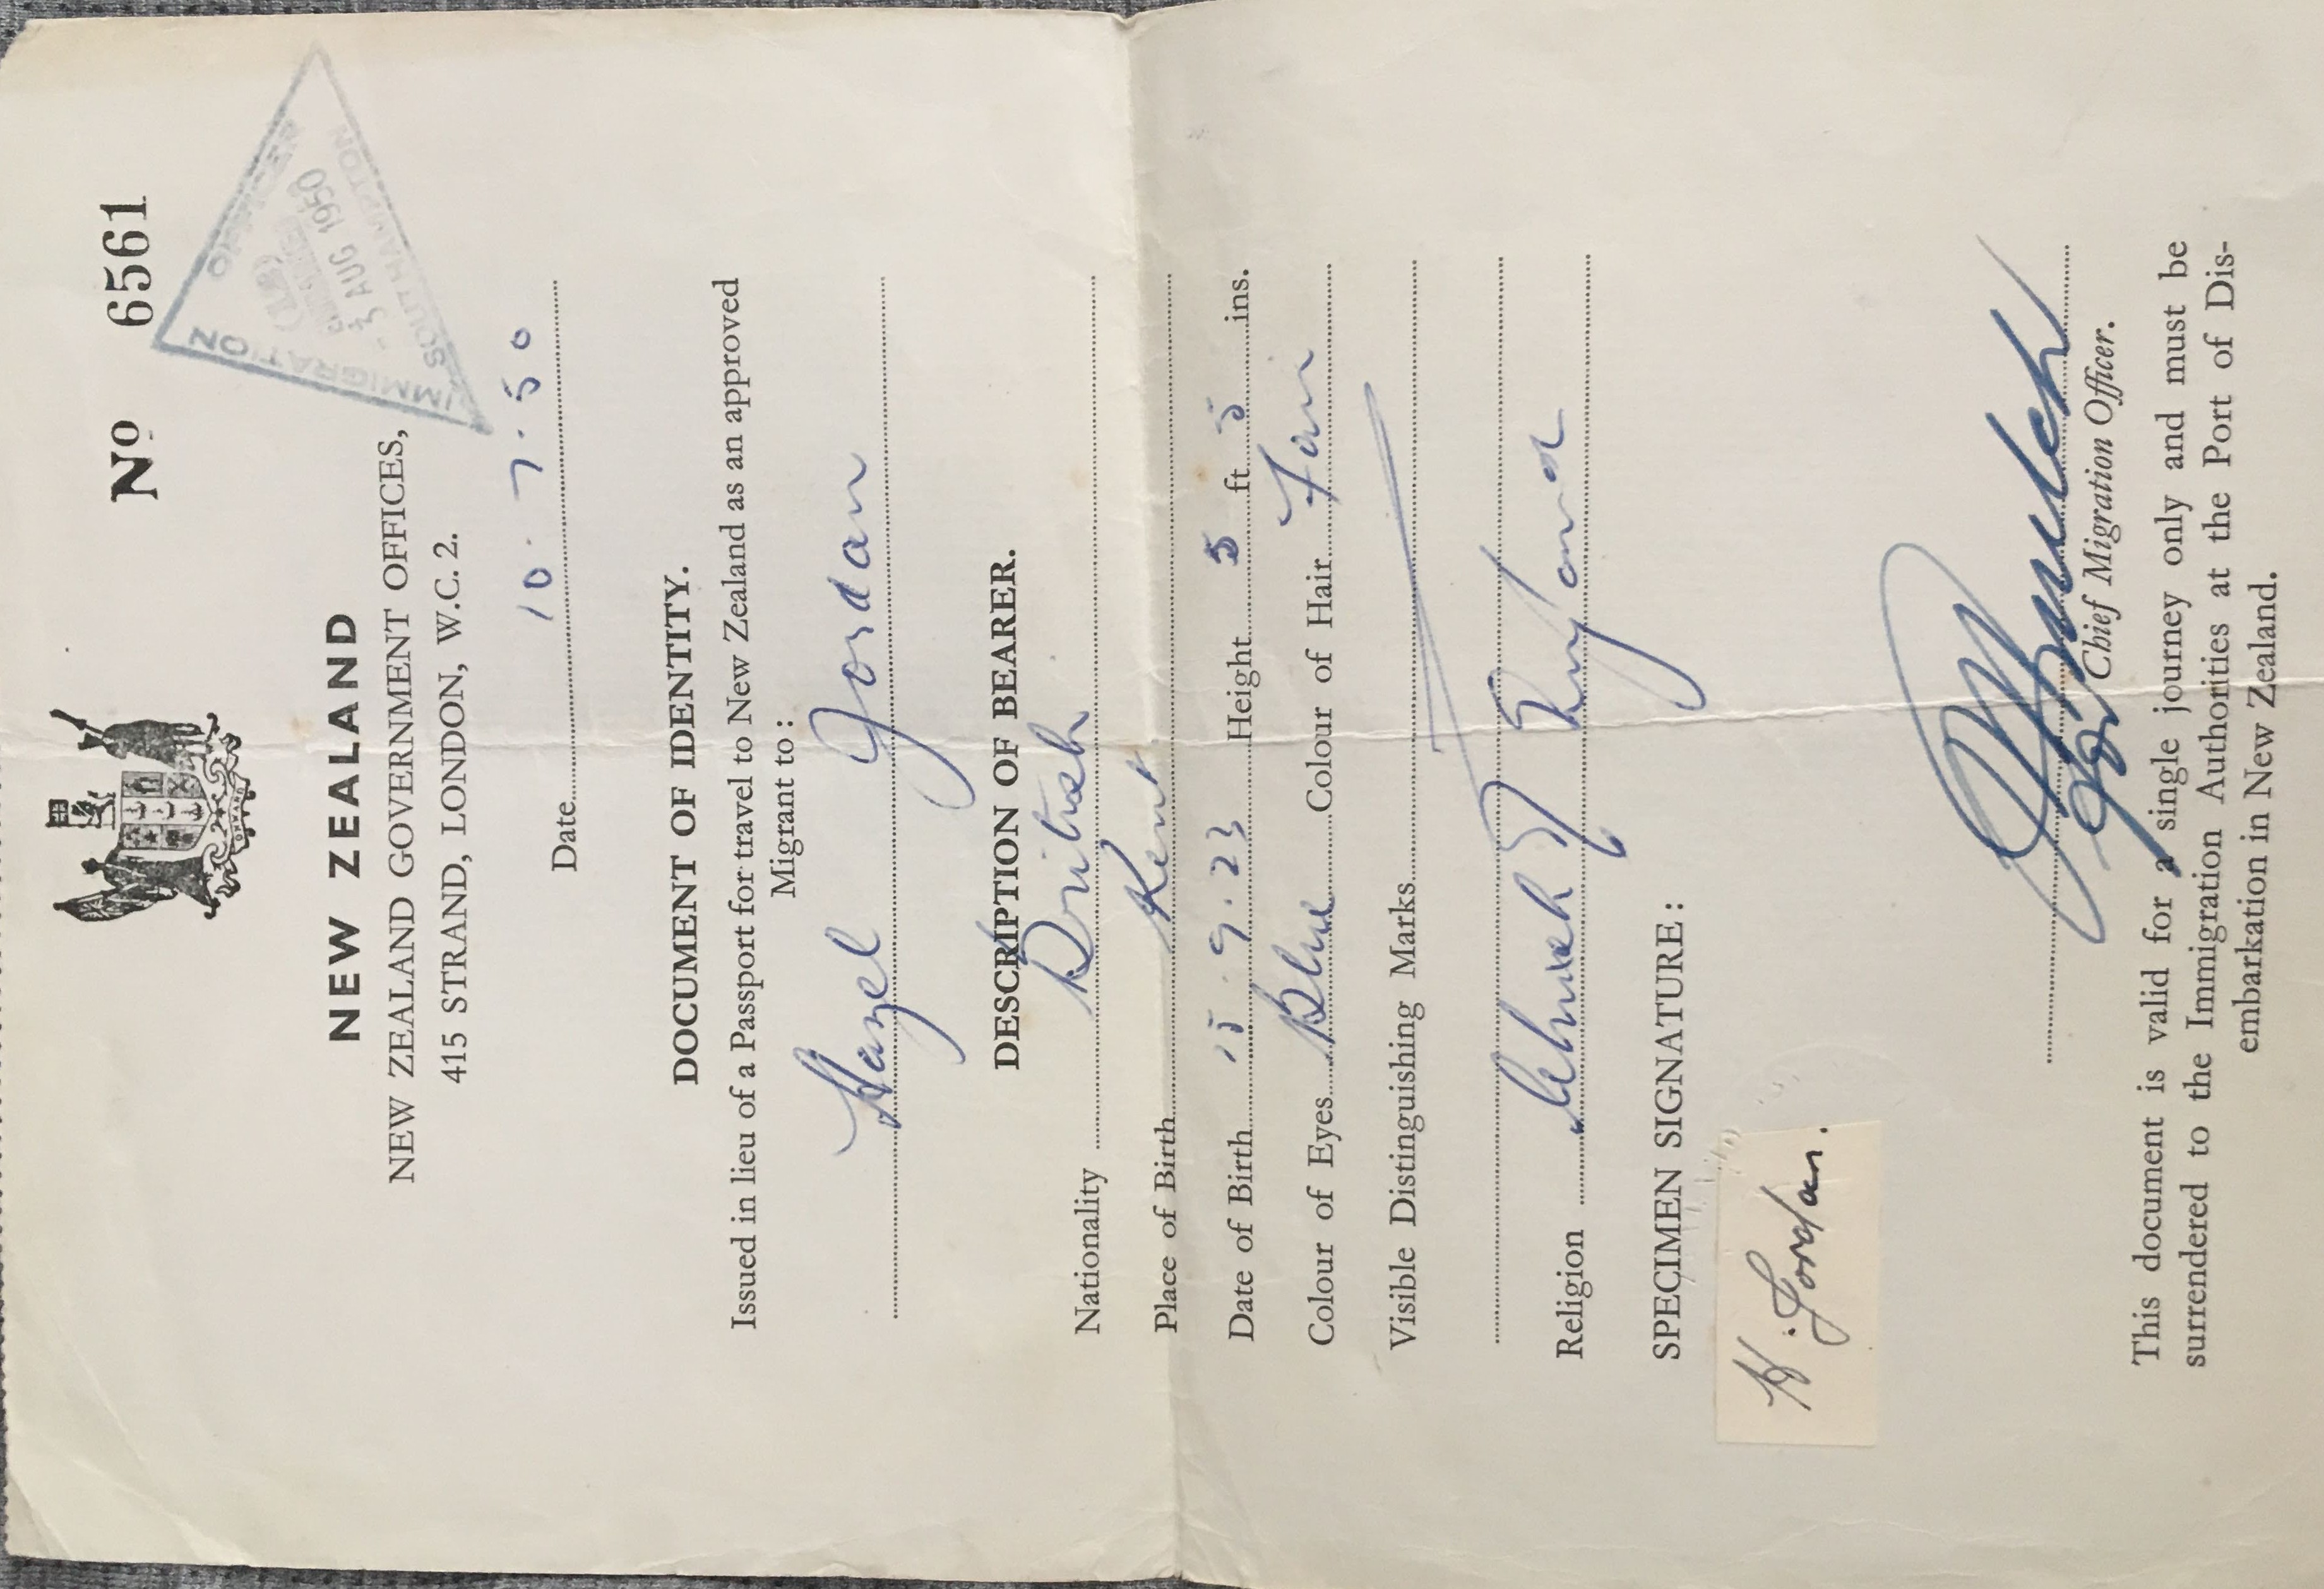 ONWARD
Nº 6561
IMMIGRATION OFFICER
- 3 AUG 1950
SOUTHAMPTON
NEW ZEALAND
NEW ZEALAND GOVERNMENT OFFICES,
415 STRAND, LONDON, W.C. 2.
Date 10.7.50
DOCUMENT OF IDENTITY.
Issued in lieu of a Passport for travel to New Zealand as an approved
Migrant to :
Hazel Jordan
DESCRIPTION OF BEARER.
Nationality British
Place of Birth Kent
Date of Birth 15.9.23 Height 5 ft 5 ins.
Colour of Eyes Blue Colour of Hair Fair
Visible Distinguishing Marks
Religion Church of England
SPECIMEN SIGNATURE :
H. Jordan.
for Chief Migration Officer.
This document is valid for a single journey only and must be
surrendered to the Immigration Authorities at the Port of Dis-
embarkation in New Zealand.